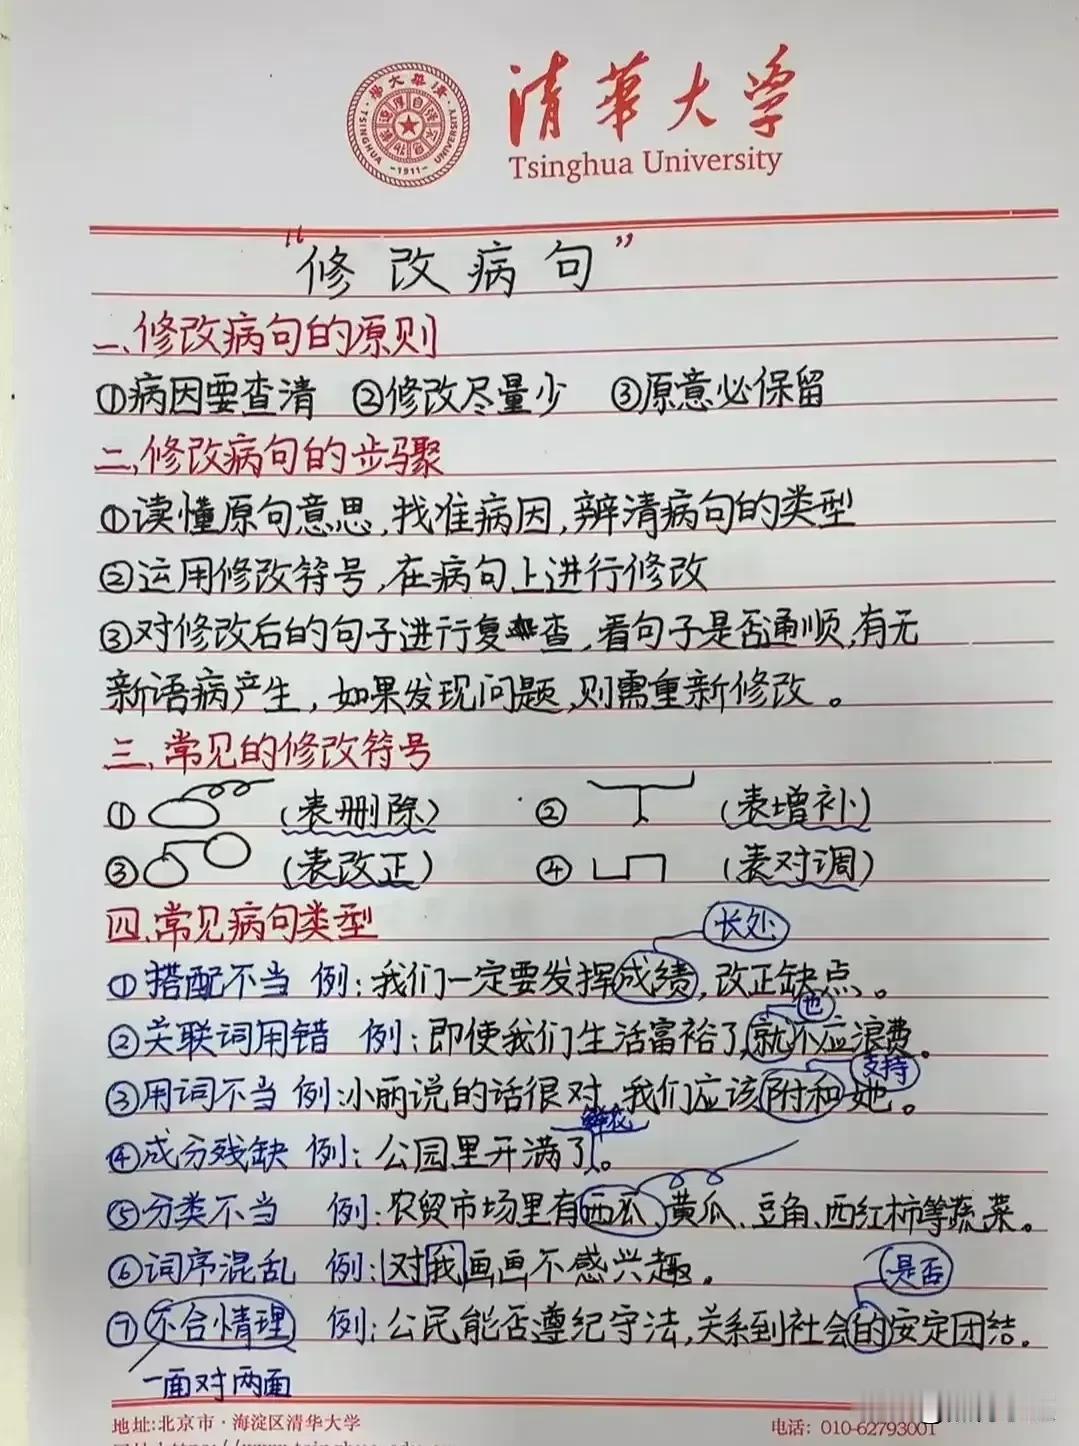 清华大学
Tsinghua University
TSINGHUA UNIVERSITY
-1911-
“修改病句”
一、修改病句的原则
①病因要查清 ②修改尽量少 ③原意必保留
二、修改病句的步骤
①读懂原句意思,找准病因,辨清病句的类型
②运用修改符号,在病句上进行修改
③对修改后的句子进行复查,看句子是否通顺,有无
新语病产生,如果发现问题,则需重新修改。
三、常见的修改符号
① (表删除) ② (表增补)
③ (表改正) ④ (表对调)
四、常见病句类型
长处
①搭配不当 例:我们一定要发挥成绩,改正缺点。
也
②关联词用错 例:即使我们生活富裕了,就不应浪费。
支持
③用词不当 例:小丽说的话很对,我们应该附和她。
鲜花
④成分残缺 例:公园里开满了。
⑤分类不当 例:农贸市场里有西瓜、黄瓜、豆角、西红柿等蔬菜。
⑥词序混乱 例:对我画画不感兴趣。
是否
⑦不合情理 例:公民能否遵纪守法,关系到社会的安定团结。
一面对两面
地址:北京市·海淀区清华大学
电话: 010-62793001